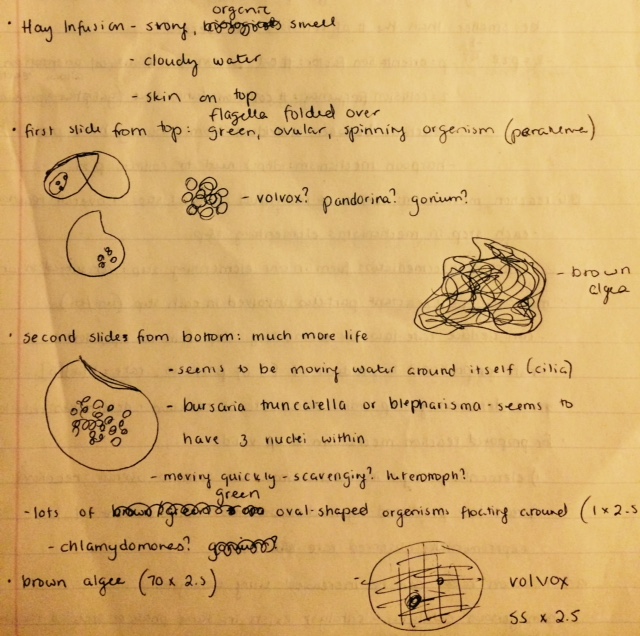 organic
• Hay Infusion - strong, smell
- cloudy water
- skin on top
flagella folded over
• first slide from top: green, ovular, spinning orgenism (
- volvox? pandorina? gonium?
- brown algea
• second slides from bottom: much more life
- seems to be moving water around itself (cilia)
- bursaria truncatella or blepharisma - seems to
have 3 nuclei within
- moving quickly - scavenging? heteromoph?
green
- lots of oval-shaped organisms floating around (1 x 2.5
- chlamydomones?
• brown algee (70 x 2.5)
volvox
55 x 2.5